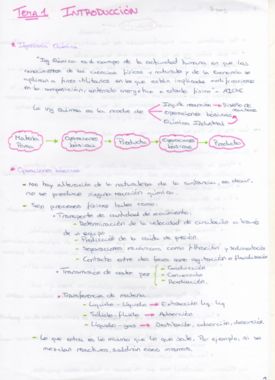 Tema 1 INTRODUCCIÓN
* Ingeniería Química
"Ing Química es el campo de la actividad humana en que los
conocimientos de las ciencias físicas y naturales y de la economía se
aplican a fines utilitarios en los que están implicados modificaciones
en la composición, contenido energético o estado físico" - AIChE
La Ing Química es la suma de
Ing de reacción → Diseño de reactores
operaciones básicas
Química Industrial
Materia Prima
Operaciones básicas
Producto
Operaciones básicas
Producto
* Operaciones básicas
- No hay alteración de la naturaleza de la sustancia, es decir,
no se produce ninguna reacción química.
- Son procesos físicos tales como:
• Transporte de cantidad de movimiento:
- Determinación de la velocidad de circulación a través
de un equipo
- Predicción de la caída de presión.
- Separaciones mecánicas como filtración y sedimentación
- Contacto entre dos fases como agitación o fluidización
• Transmisión de calor por
Conducción
Convección
Radiación
• Transferencia de materia
- Líquido - Líquido → Extracción líq - líq
- Sólido - fluido → Adsorción
- Líquido - gas → Destilación, absorción, desorción
- Lo que entra es lo mismo que lo que sale. Por ejemplo, si se